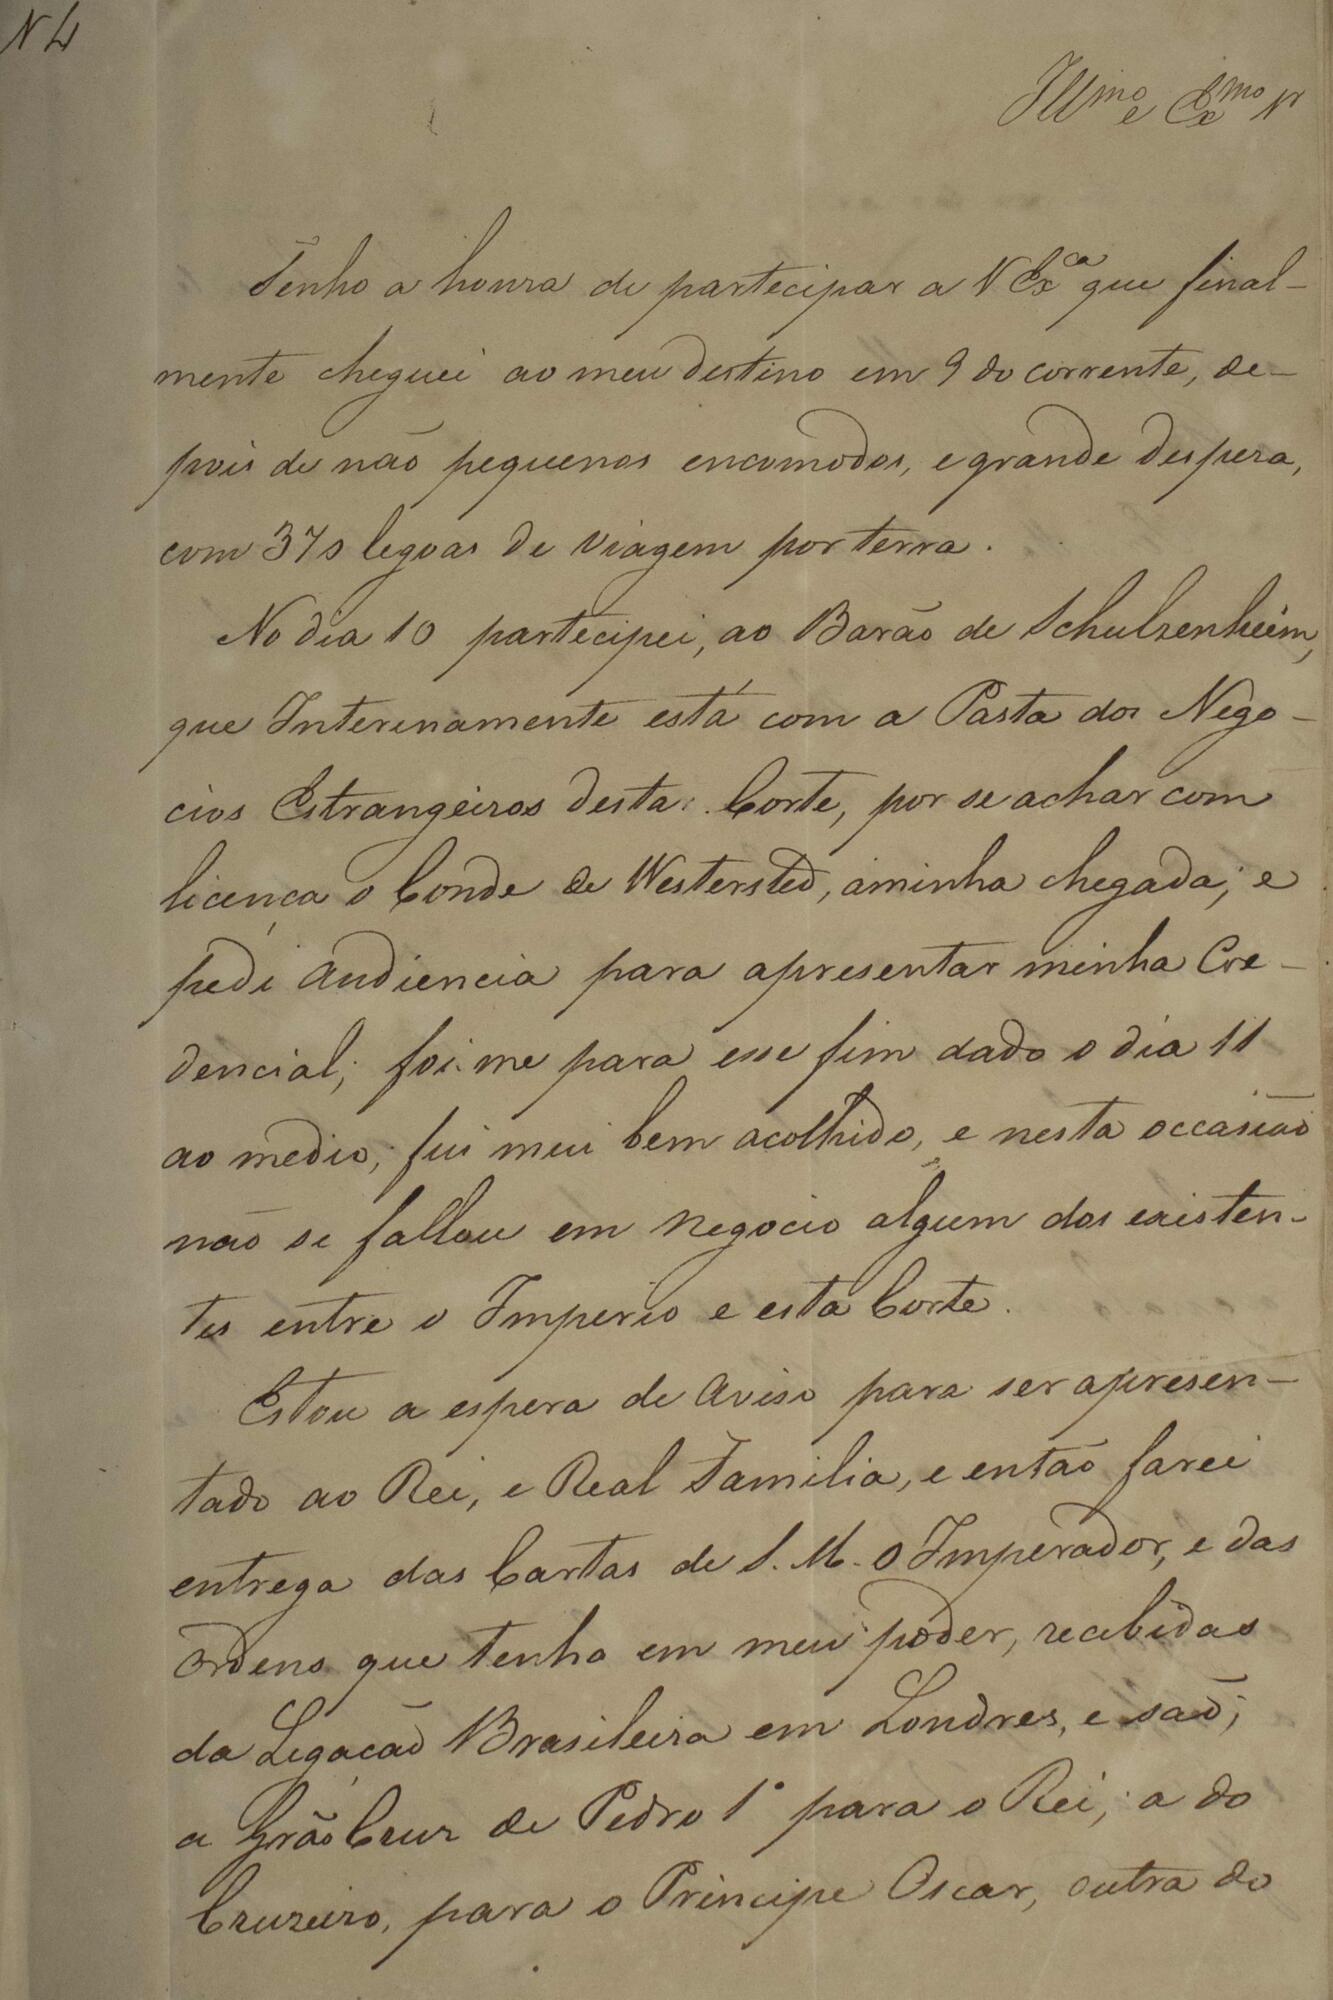 N 4
Illmo e Exmo Sr
Tenho a honra de partecipar a V Exca que final-
mente cheguei ao meu destino em 9 do corrente, de-
pois de não pequenos encomodos, e grande despeza,
com 370 legoas de viagem por terra.
No dia 10 partecipei, ao Barão de Schulzenheim,
que Interinamente está com a Pasta dos Nego-
cios Estrangeiros desta Corte, por se achar com
licença o Conde de Wettersted, a minha chegada; e
pedi Audiencia para apresentar minha Cre-
dencial; foi-me para esse fim dado o dia 11
ao medio; fui mui bem acolhido, e nesta occasião
não se fallou em negocio algum dos existen-
tes entre o Imperio e esta Corte.
Estou a espera de Aviso para ser apresen-
tado ao Rei, e Real Familia, e então farei
entrega das Cartas de S. M. O Imperador, e das
Ordens que tenho em meu poder, recebidas
da Legação Brasileira em Londres, e são;
a Grão Cruz de Pedro 1º para o Rei; a do
Cruzeiro, para o Principe Oscar, outra do